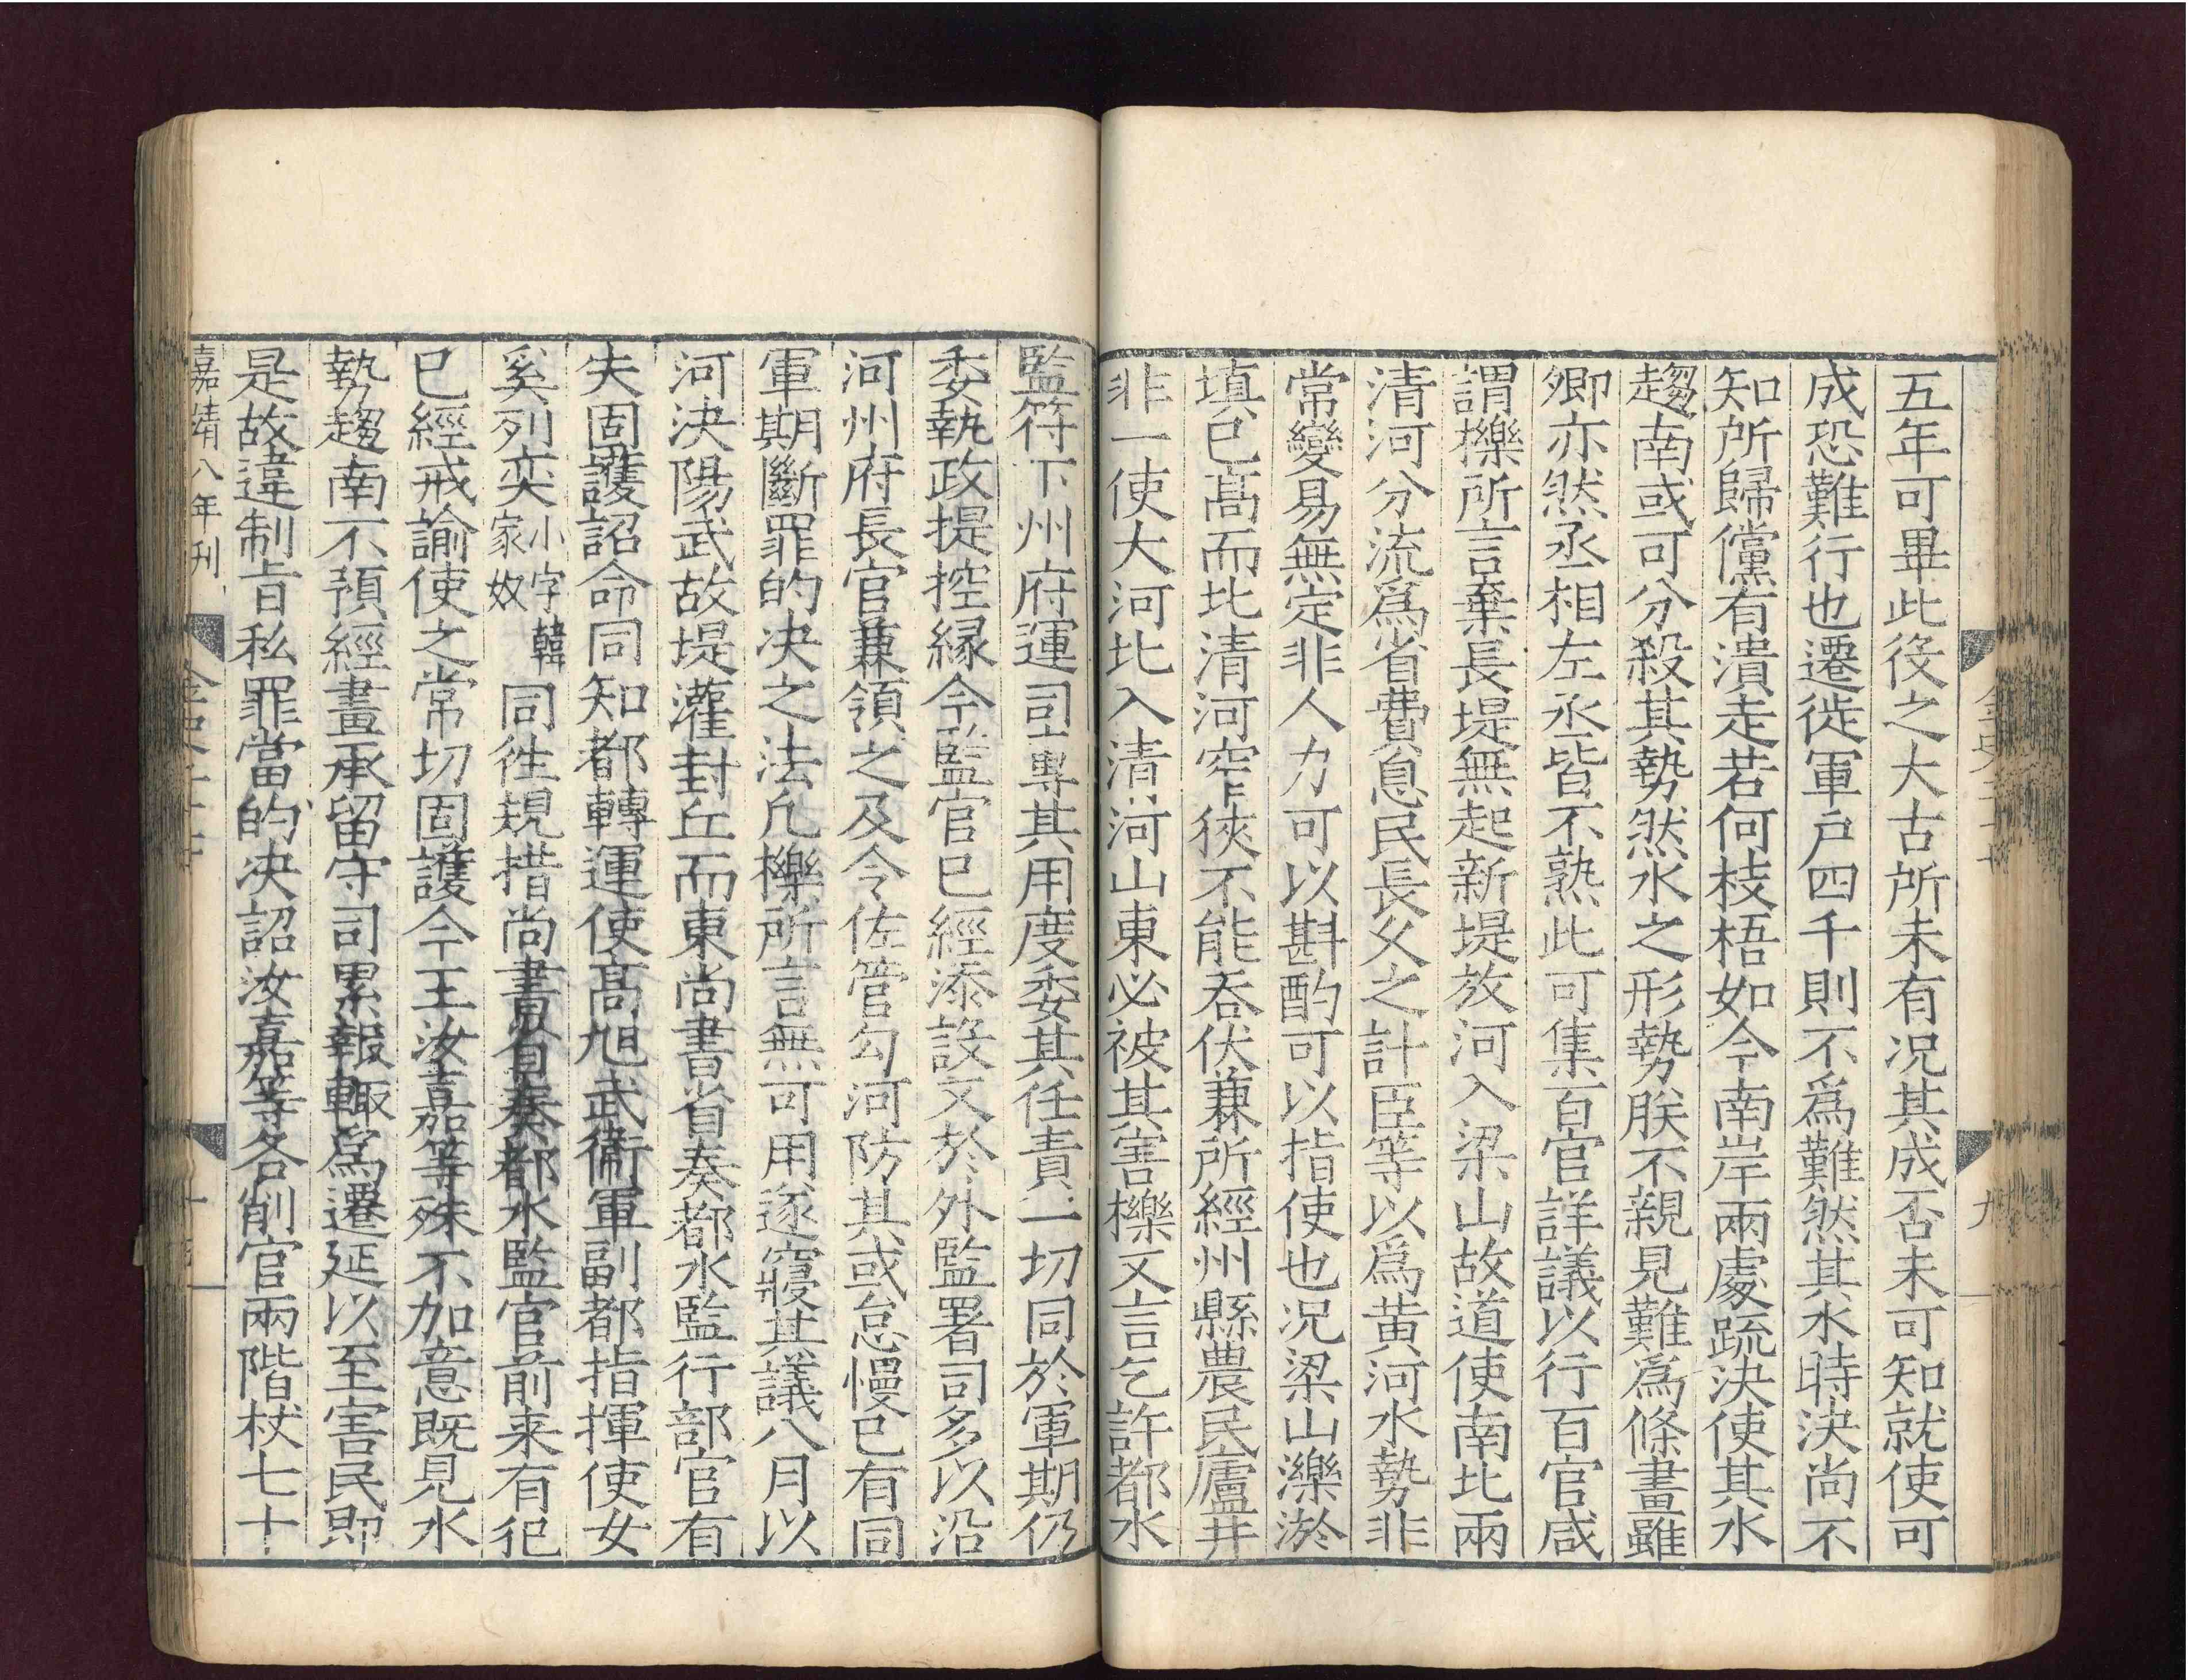 五年可畢此役之大古所未有况其成否未可知就使可
成恐難行也遷徙軍户四千則不為難然其水時決尚不
知所歸儻有潰走若何枝梧如今南岸兩處䟽決使其水
趨南或可分殺其勢然水之形勢朕不親見難為條畫雖
卿亦然丞相左丞皆不熟此可集百官詳議以行百官咸
謂櫟所言棄長堤無起新堤放河入梁山故道使南北兩
清河分流為省費息民長久之計臣等以為黄河水勢非
常變易無定非人力可以斟酌可以指使也况梁山濼淤
填已髙而北清河窄狹不能吞伏兼所經州縣農民廬井
非一使大河北入清河山東必被其害櫟文言乞許都水
監符下州府運司專其用度委其任責一切同於軍期仍
委執政提控縁今監官已經添設文於外監署司多以沿
河州府長官兼領之及令佐管勾河防其或怠慢已有同
軍期斷罪的決之法凡櫟所言無可用遂寢其議八月以
河決陽武故堤灌封丘而東尚書省奏都水監行部官有
失固護詔命同知都轉運使髙旭武衛軍副都指揮使女
奚列奕小字韓家奴同徃規措尚書省奏都水監官前来有犯
已經戒諭使之常切固護今王汝嘉等殊不加意既見水
勢趨南不預經畫承留守司累報輒為遷延以至害民即
是故違制旨私罪當的決詔汝嘉等各削官兩階杖七十
嘉靖八年刊
金史二十七
九